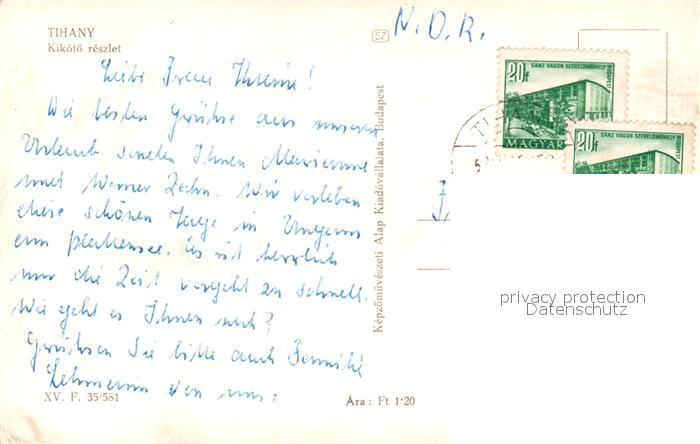 TIHANY
Kikötő részlet
SZ
N.D.R.
Liebe Frau
Die besten Grüße aus unserem
Urlaub senden Ihnen Marianne
und Werner Zahn. Wir verleben
schöne Tage in Ungarn
am Plattensee. Es ist herrlich
nur die Zeit vergeht zu schnell.
Wie geht es Ihnen noch?
Grüßen Sie bitte auch Familie
von uns.
XV. F. 35/581
Ára: Ft 1·20
Képzőművészeti Alap Kiadóvállalata, Budapest
20f
GANZ VAGON SZERELŐMŰHELY BUDAPEST
MAGYAR
20f
GANZ VAGON SZERELŐMŰHELY BUDAPEST
privacy protection
Datenschutz